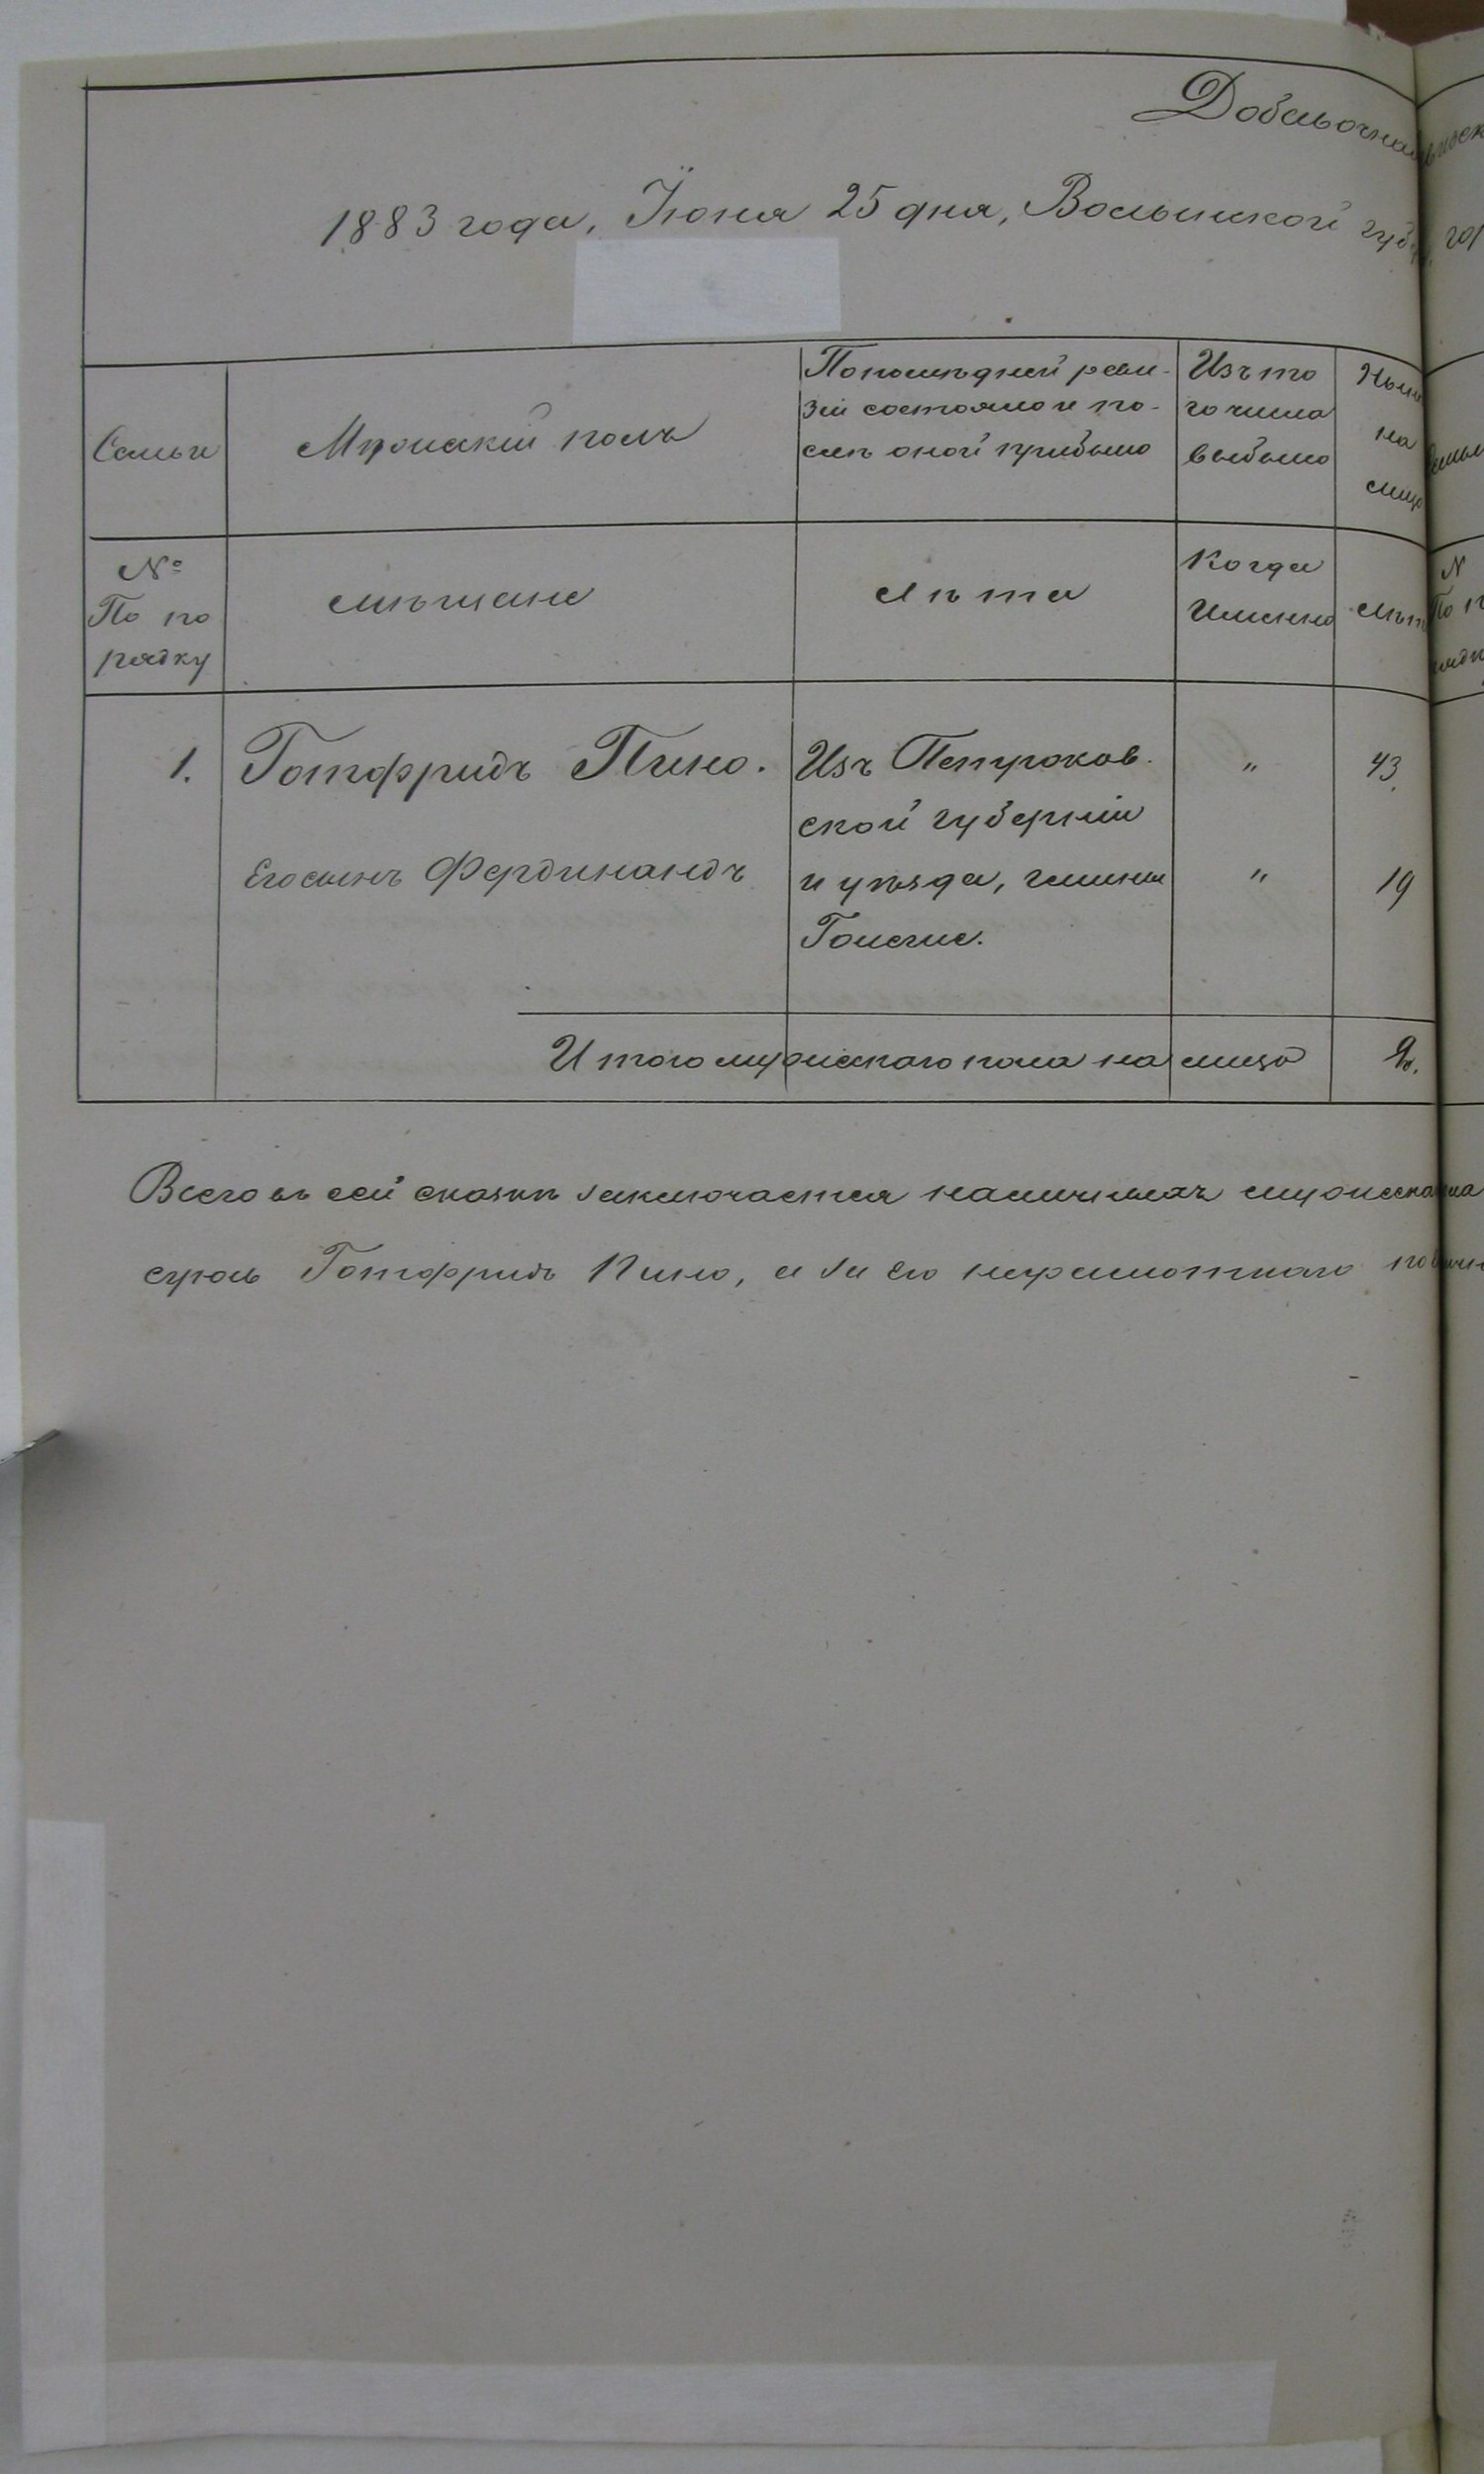 Добавочная
1883 года, Іюня 25 дня, Волынской губ
Семьи
Мужскій полъ
По послѣдней реви-
зіи состояло и по-
слѣ оной прибыло
Изъ то
го числа
выбыло
Нынѣ
на
лицо
№
По по
рядку
мѣщане
лѣта
Когда
Именно
лѣт
1. Готфридъ Пино. Изъ Петроков- " 43.
ской губерніи
Его сынъ Фердинандъ и уѣзда, гмины " 19
Итого мужескаго пола на лицо 2.
Всего въ сей сказкѣ заключается наличныхъ мужеска
Готфридъ Пино, а за его неграмотнаго